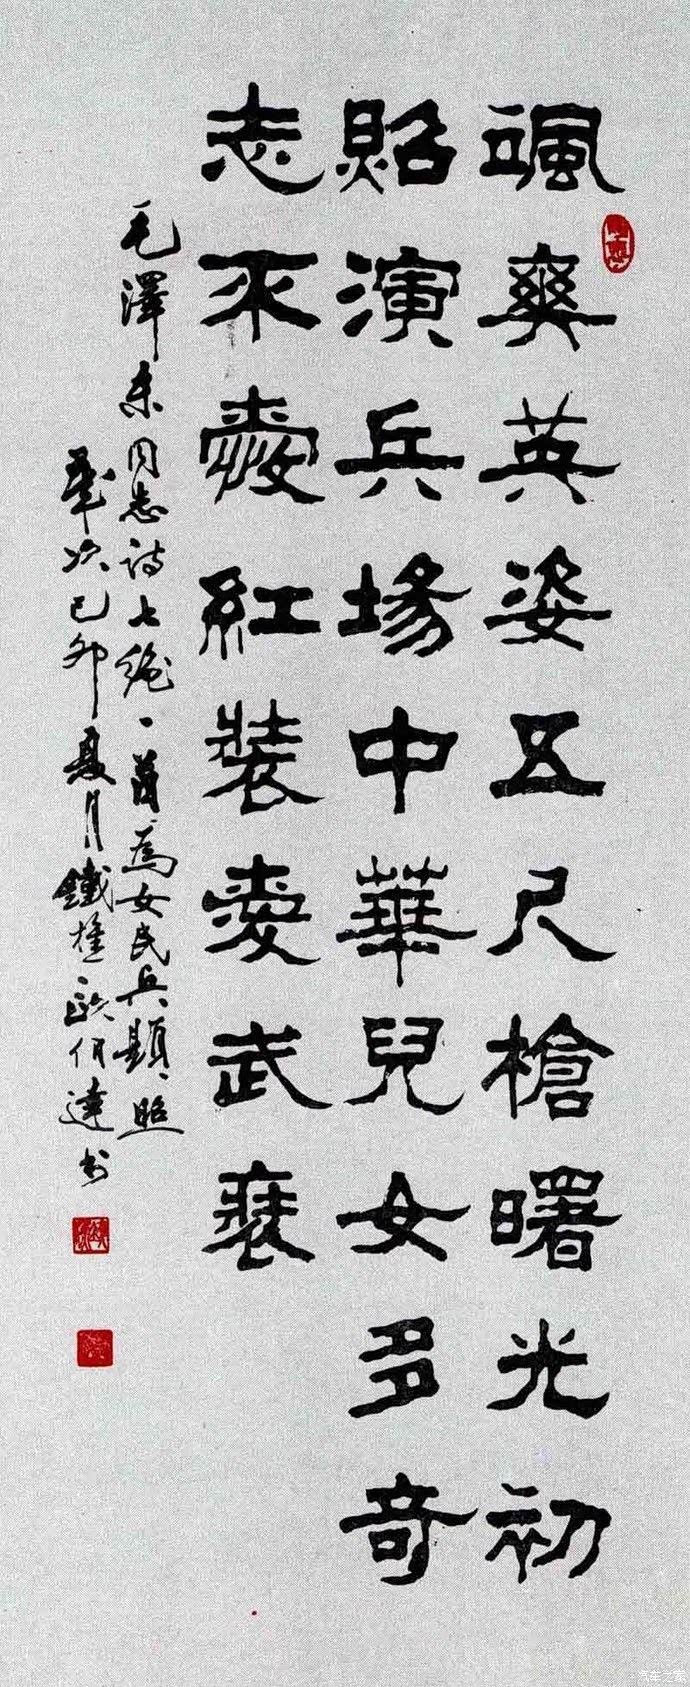 颯爽英姿五尺槍曙光初
照演兵場中華兒女多奇
志不愛紅裝愛武裝
毛澤东同志詩七絕一首為女民兵題照
歲次己卯夏月鐵達书
汽车之家